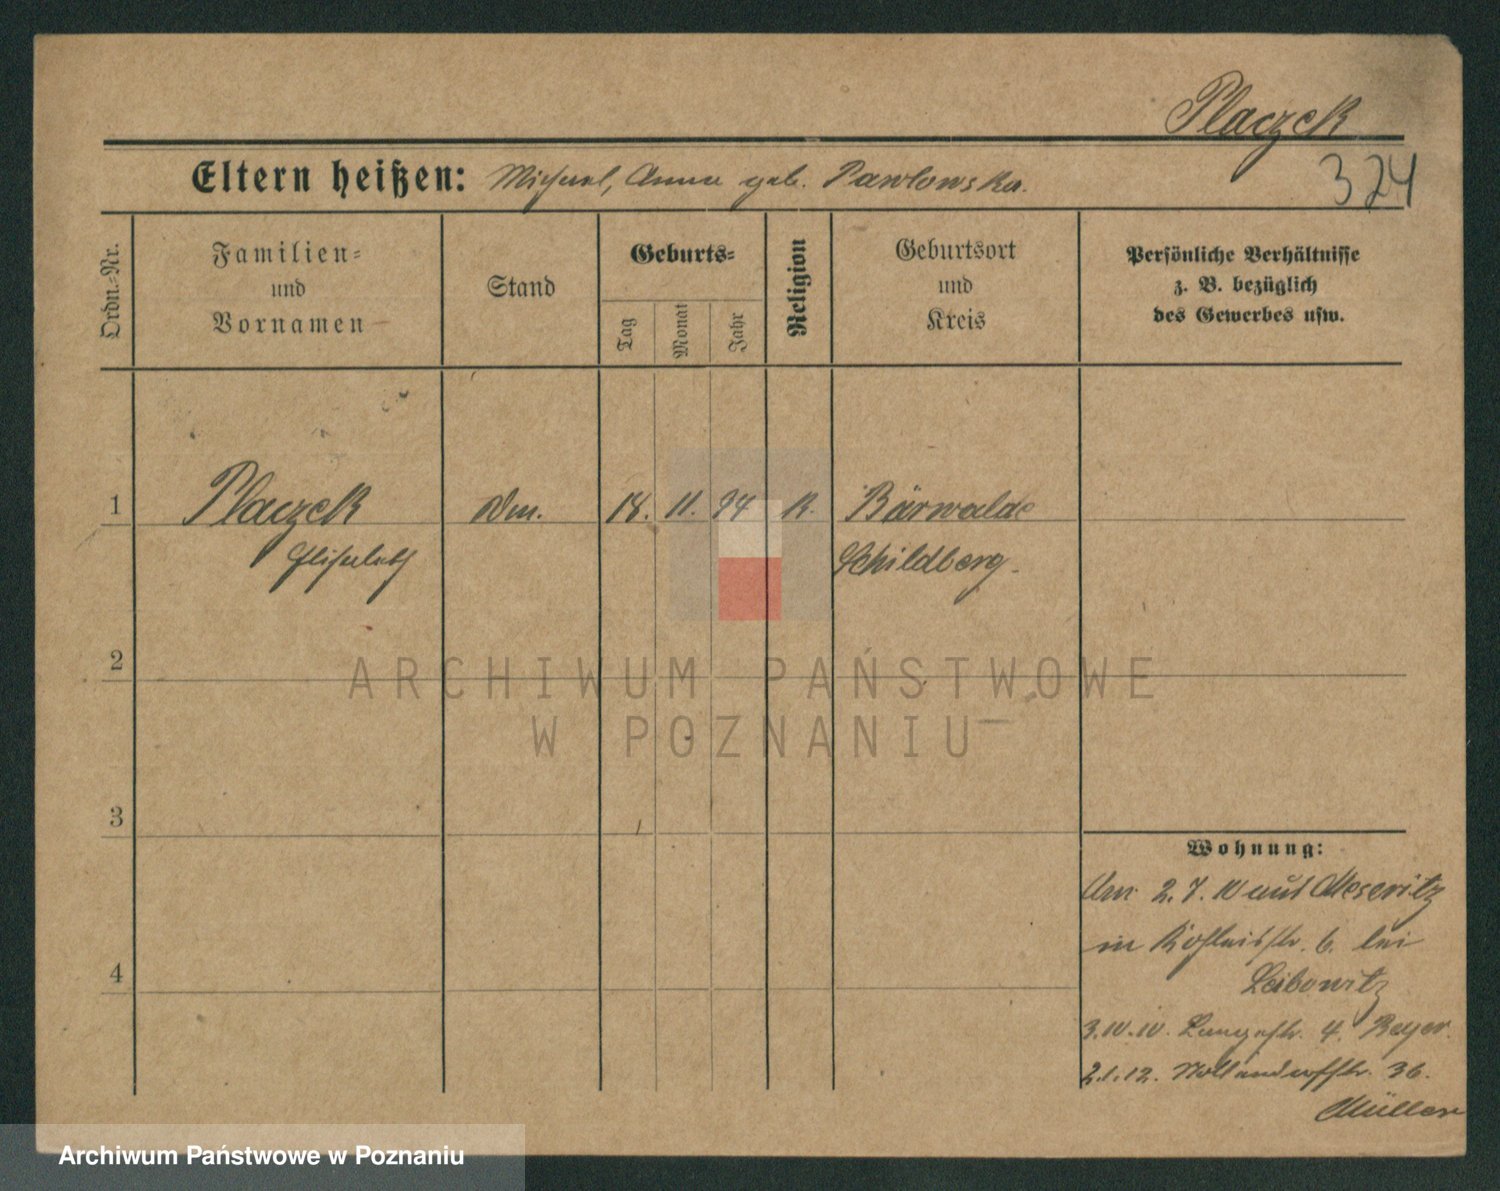 Placzek
324
Eltern heißen: Michael, Anna geb. Pawlowska.
Ordn.-Nr.
Familien-
und
Vornamen
Stand
Geburts-
Tag
Monat
Jahr
Religion
Geburtsort
und
Kreis
Persönliche Verhältnisse
z. B. bezüglich
des Gewerbes usw.
1 Placzek 18. 11. 94 K. Bärwalde
Elisabeth Schildberg.
2
3
4
Wohnung:
2.7.10 aus Meseritz
in 6. bei
Leibowitz
3.10.10. Langestr. 4. Beyer.
2.1.12. Nollendorfstr. 36.
Müller
ARCHIWUM PAŃSTWOWE
W POZNANIU
Archiwum Państwowe w Poznaniu